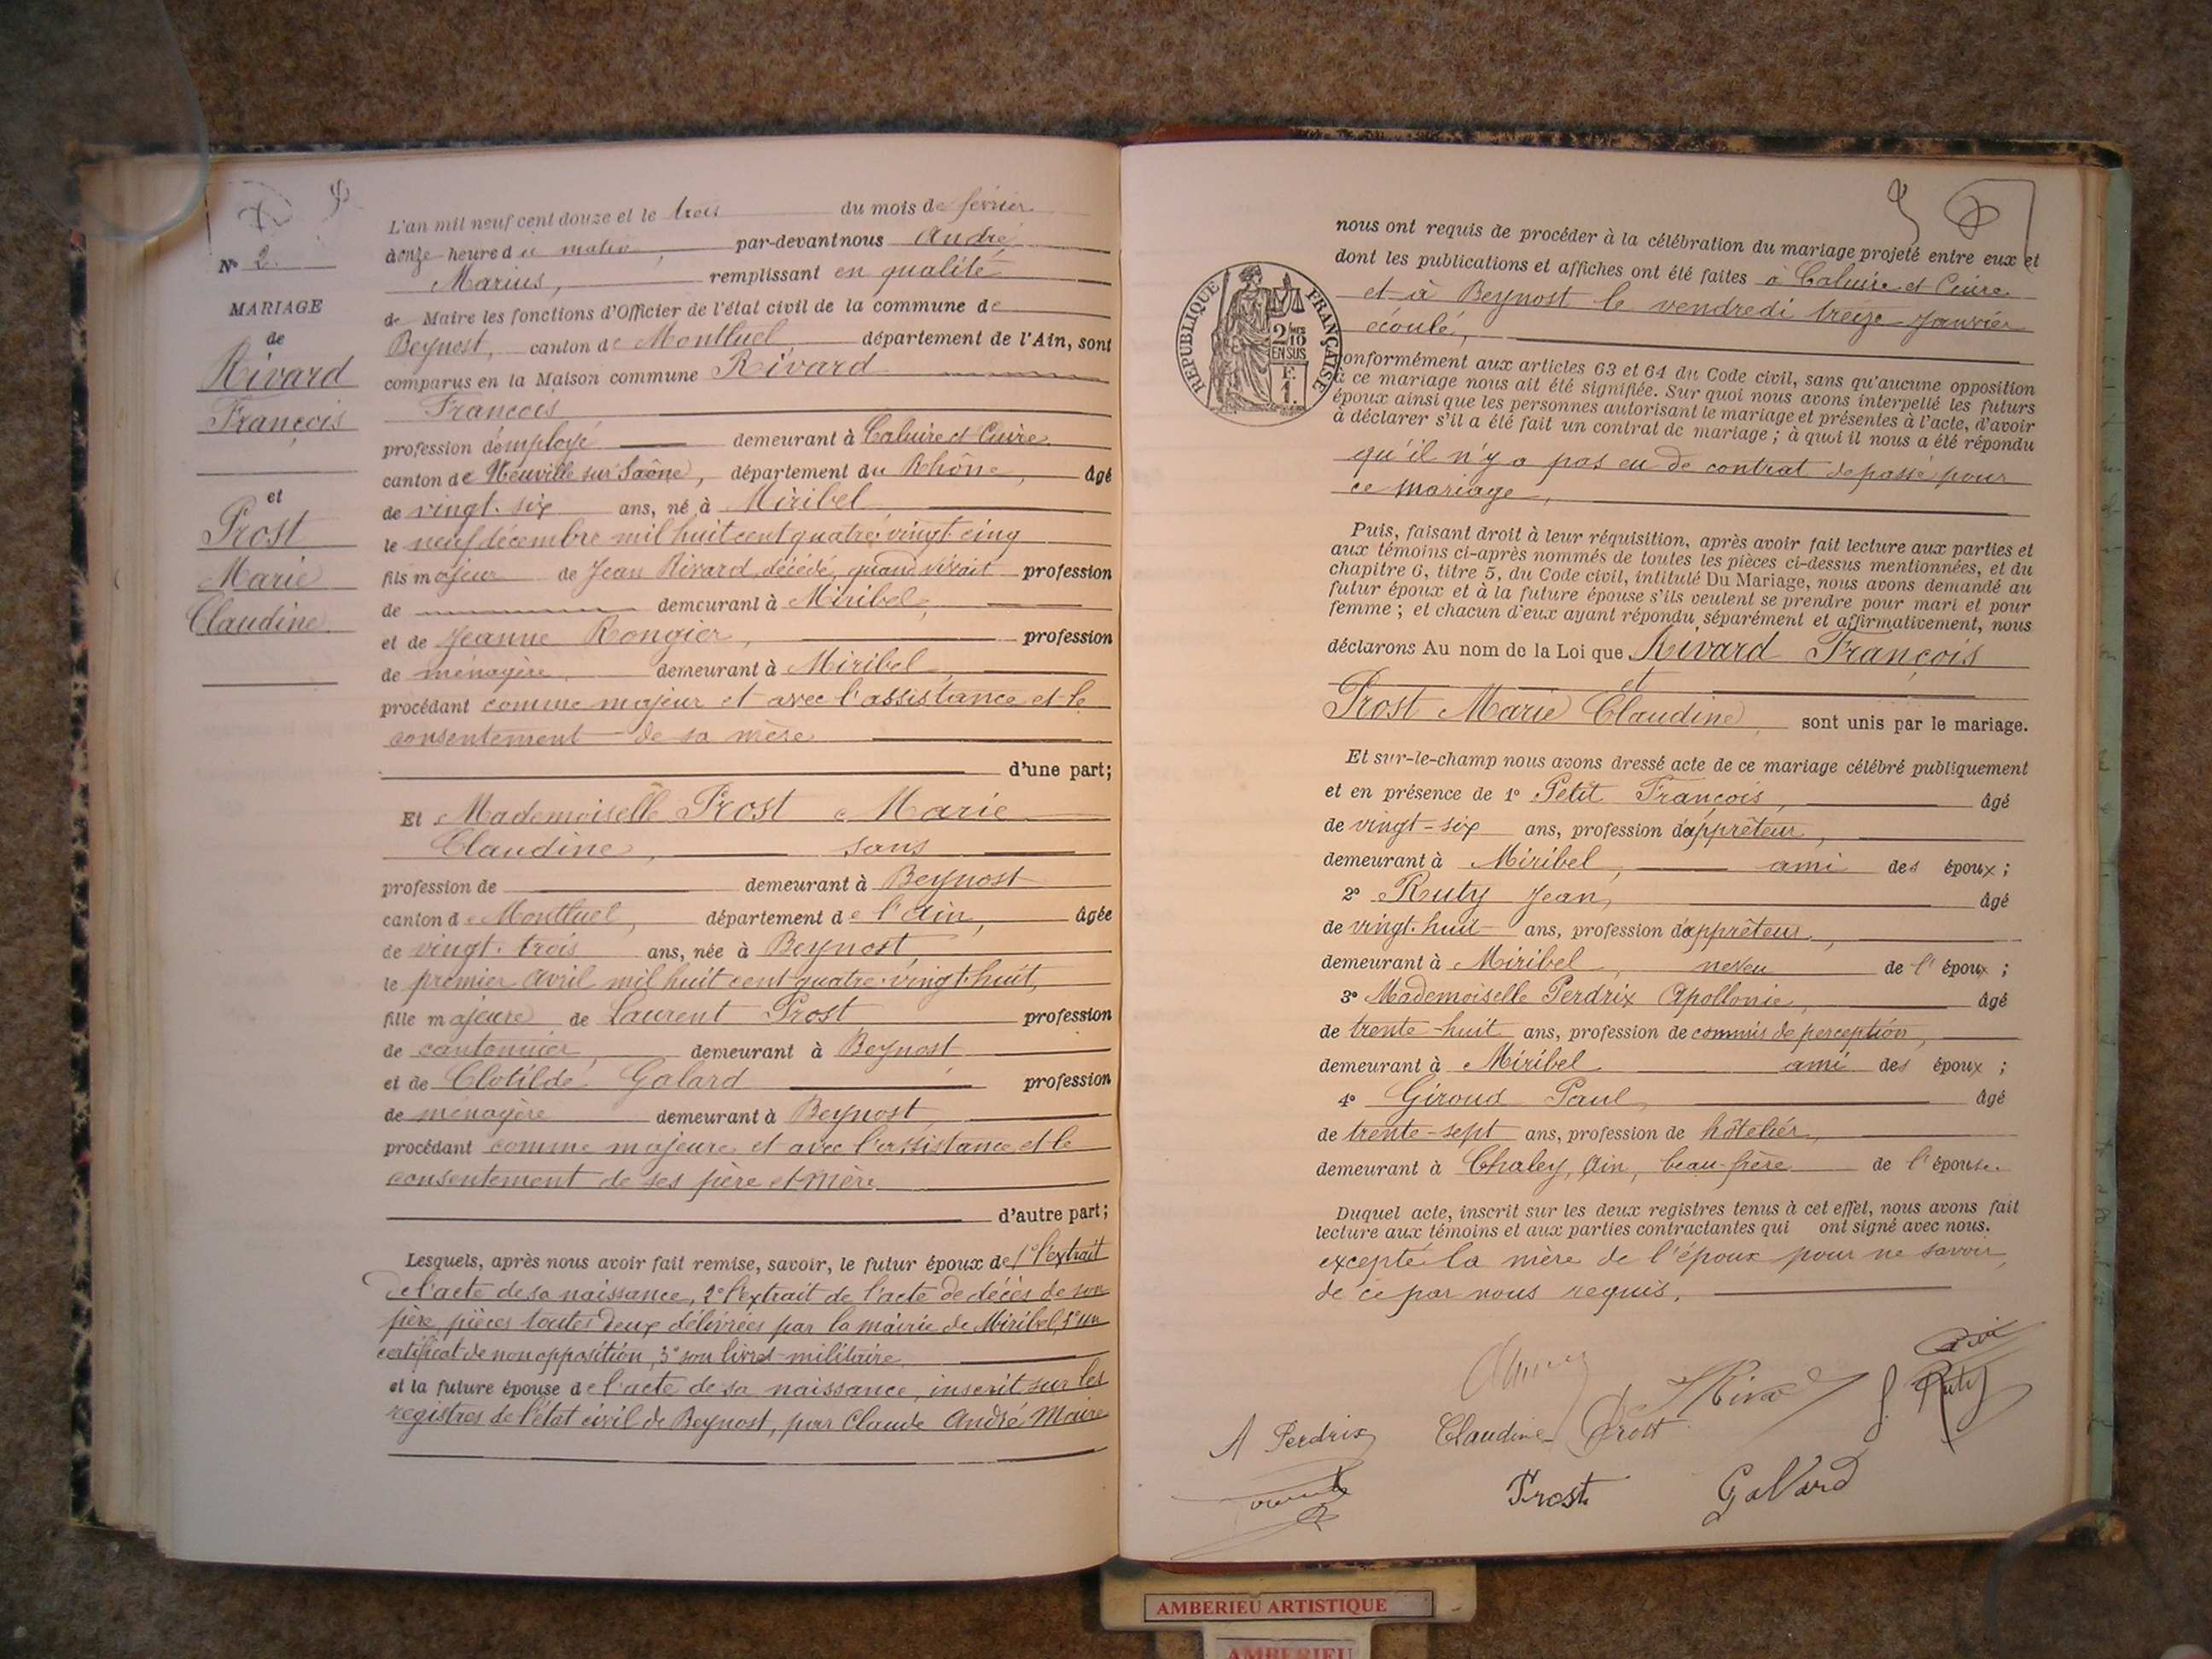 N° 2.
MARIAGE
de
Rivard
François
et
Prost
Marie
Claudine
L'an mil neuf cent douze et le trois du mois de février
donze heure du matin, par-devant nous André
Marius, remplissant en qualité
de Maire les fonctions d'Officier de l'état civil de la commune de
Beynost, canton de Montluel, département de l'Ain, sont
comparus en la Maison commune Rivard
François
profession d'employé demeurant à Caluire et Cuire
canton de Neuville sur Saône, département du Rhône, âgé
de vingt-six ans, né à Miribel
le neuf décembre mil huit cent quatre-vingt-cinq
fils majeur de Jean Rivard décédé, quand vivait profession
de demeurant à Miribel,
et de Jeanne Rongier, profession
de ménagère demeurant à Miribel,
procédant comme majeur et avec l'assistance et le
consentement de sa mère
d'une part;
Et Mademoiselle Prost Marie
Claudine, sans
profession de demeurant à Beynost
canton de Montluel, département de l'Ain, âgée
de vingt-trois ans, née à Beynost,
le premier Avril mil huit cent quatre-vingt-huit,
fille majeure de Laurent Prost profession
de cantonnier, demeurant à Beynost
et de Clotilde Galard profession
de ménagère demeurant à Beynost
procédant comme majeure et avec l'assistance et le
consentement de ses père et mère
d'autre part;
Lesquels, après nous avoir fait remise, savoir, le futur époux de 1° l'extrait
de l'acte de sa naissance, 2° l'extrait de l'acte de décès de son
père, pièces toutes deux délivrées par la mairie de Miribel, un
certificat de non opposition, 3° son livret militaire
et la future épouse de l'acte de sa naissance, inscrit sur les
registres de l'état civil de Beynost, par Claude André Maire
nous ont requis de procéder à la célébration du mariage projeté entre eux et
dont les publications et affiches ont été faites à Caluire et Cuire
et à Beynost le vendredi treize Janvier
écoulé,
RÉPUBLIQUE FRANÇAISE
2/10
EN SUS
F.
1.
conformément aux articles 63 et 64 du Code civil, sans qu'aucune opposition
à ce mariage nous ait été signifiée. Sur quoi nous avons interpellé les futurs
époux ainsi que les personnes autorisant le mariage et présentes à l'acte, d'avoir
à déclarer s'il a été fait un contrat de mariage; à quoi il nous a été répondu
qu'il n'y a pas eu de contrat de passé pour
ce mariage,
Puis, faisant droit à leur réquisition, après avoir fait lecture aux parties et
aux témoins ci-après nommés de toutes les pièces ci-dessus mentionnées, et du
chapitre 6, titre 5, du Code civil, intitulé Du Mariage, nous avons demandé au
futur époux et à la future épouse s'ils veulent se prendre pour mari et pour
femme; et chacun d'eux ayant répondu séparément et affirmativement, nous
déclarons Au nom de la Loi que Rivard François
et
Prost Marie Claudine, sont unis par le mariage.
Et sur-le-champ nous avons dressé acte de ce mariage célébré publiquement
et en présence de 1° Petit François, âgé
de vingt-six ans, profession d'apprêteur,
demeurant à Miribel, ami des époux;
2° Ruty Jean, âgé
de vingt-huit ans, profession d'apprêteur,
demeurant à Miribel, neveu de l'époux;
3° Mademoiselle Perdrix Apollonie, âgé
de trente-huit ans, profession de commis de perception,
demeurant à Miribel ami des époux;
4° Giroud Paul, âgé
de trente-sept ans, profession de hôtelier,
demeurant à Chaley, Ain, beau-frère de l'épouse.
Duquel acte, inscrit sur les deux registres tenus à cet effet, nous avons fait
lecture aux témoins et aux parties contractantes qui ont signé avec nous.
excepté la mère de l'époux pour ne savoir,
de ce par nous requis.
J. Ruty
A Perdrix Claudine Prost
Prost Galard
AMBERIEU ARTISTIQUE
AMBERIEU